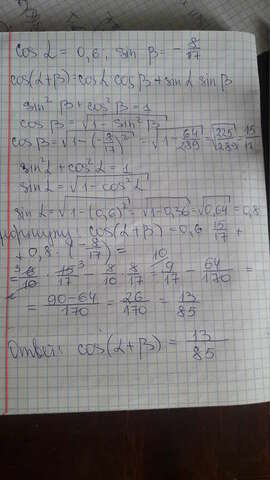 cos α = 0,6, sin β = - 8/17
cos(α+β)=cos α cos β + sin α sin β
sin² β + cos² β = 1
cos β = √1 - sin² β
cos β = √1-(-8/17)² = √1-64/289 = √225/289 = 15/17
sin² α + cos² α = 1
sin α = √1 - cos² α
sin α = √1-(0,6)² = √1-0,36 = √0,64 = 0,8
cos(α+β) = 0,6 · 15/17 +
+ 0,8 · (-8/17) =
= 6/10 · 15/17 - 8/10 · 8/17 = 9/17 - 64/170 =
= 90-64/170 = 26/170 = 13/85
Ответ: cos(α+β) = 13/85